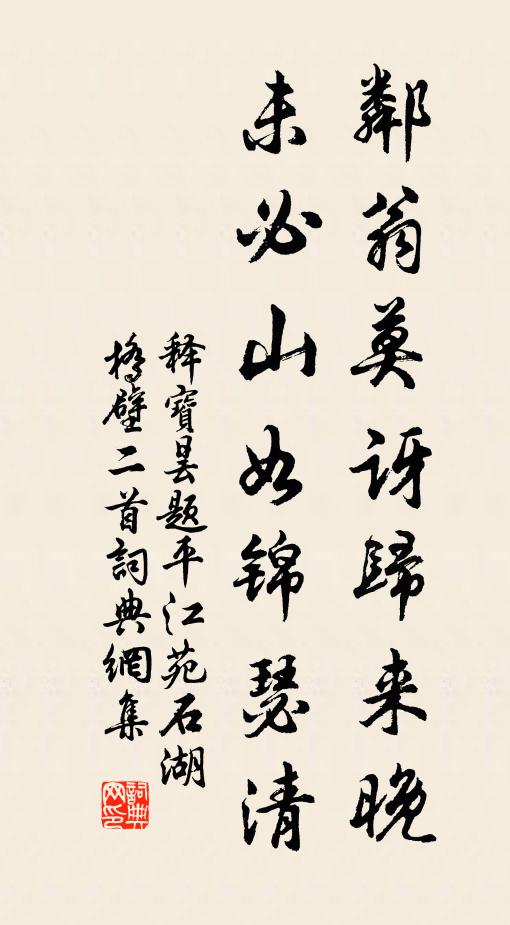 鄰翁莫訝歸来晚
未必山如锦瑟清
释寶昙题平江苑石湖
橋壁二首詞典網集
詞典网印